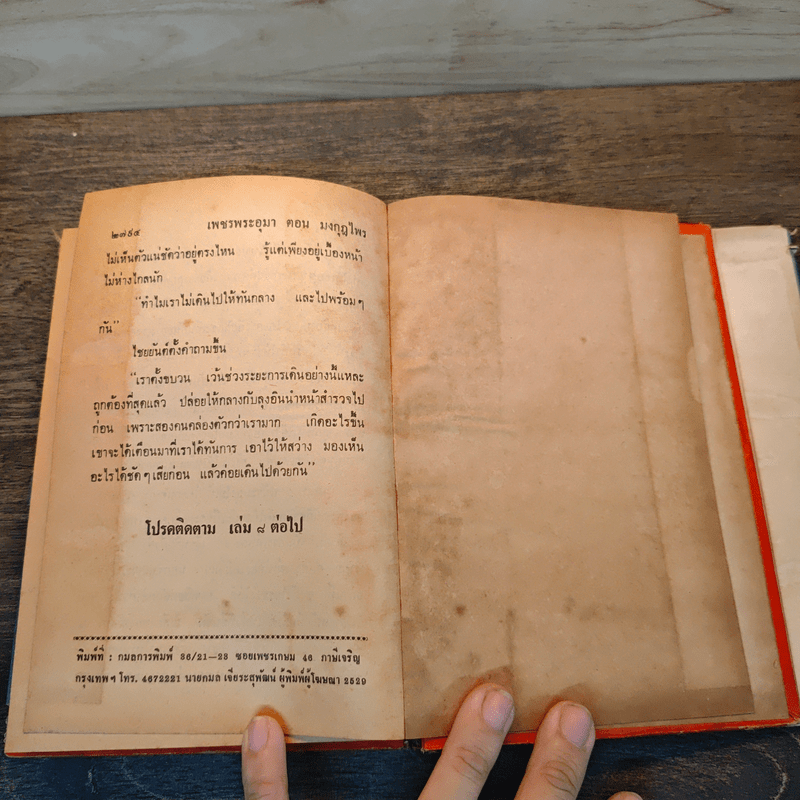 ๒๗๙๔ เพชรพระอุมา ตอน มงกุฎไพร
ไม่เห็นตัวแน่ชัดว่าอยู่ตรงไหน รู้แต่เพียงอยู่เบื้องหน้า
ไม่ห่างไกลนัก
“ทำไมเราไม่เดินไปให้ทันกลาง และไปพร้อมๆ
กัน”
ไชยยันต์ตั้งคำถามขึ้น
“เราตั้งขบวน เว้นช่วงระยะการเดินอย่างนี้แหละ
ถูกต้องที่สุดแล้ว ปล่อยให้กลางกับลุงอินนำหน้าสำรวจไป
ก่อน เพราะสองคนคล่องตัวกว่าเรามาก เกิดอะไรขึ้น
เขาจะได้เตือนมาที่เราได้ทันการ เอาไว้ให้สว่าง มองเห็น
อะไรได้ชัดๆ เสียก่อน แล้วค่อยเดินไปด้วยกัน”
โปรดติดตาม เล่ม ๘ ต่อไป
พิมพ์ที่ : กมลการพิมพ์ 36/21—23 ซอยเพชรเกษม 46 ภาษีเจริญ
กรุงเทพฯ โทร. 4672221 นายกมล เจียระสุพัฒน์ ผู้พิมพ์ผู้โฆษณา 2529